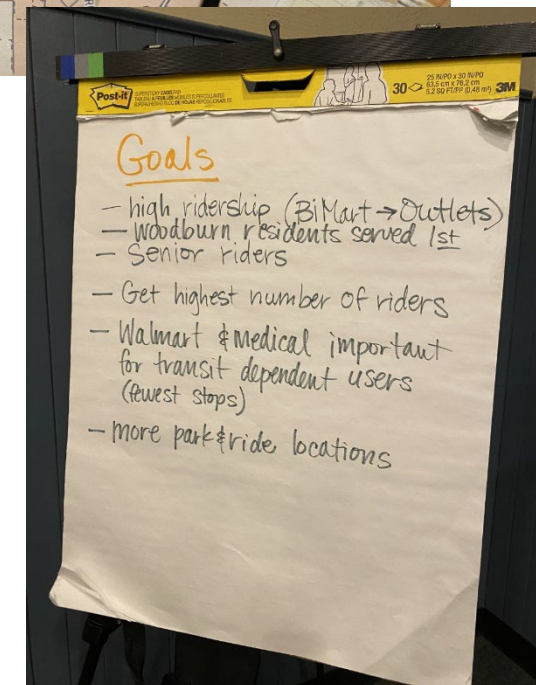 Post-it
30
25 IN/PO x 30 IN/PO
63,5 cm x 76,2 cm
5.2 SQ FT/PP (0,48 m²)
3M
Goals
- high ridership (BiMart → Outlets)
- Woodburn residents served 1st
- Senior riders
- Get highest number of riders
- Walmart & medical important
for transit dependent users
(fewest stops)
- more park & ride locations